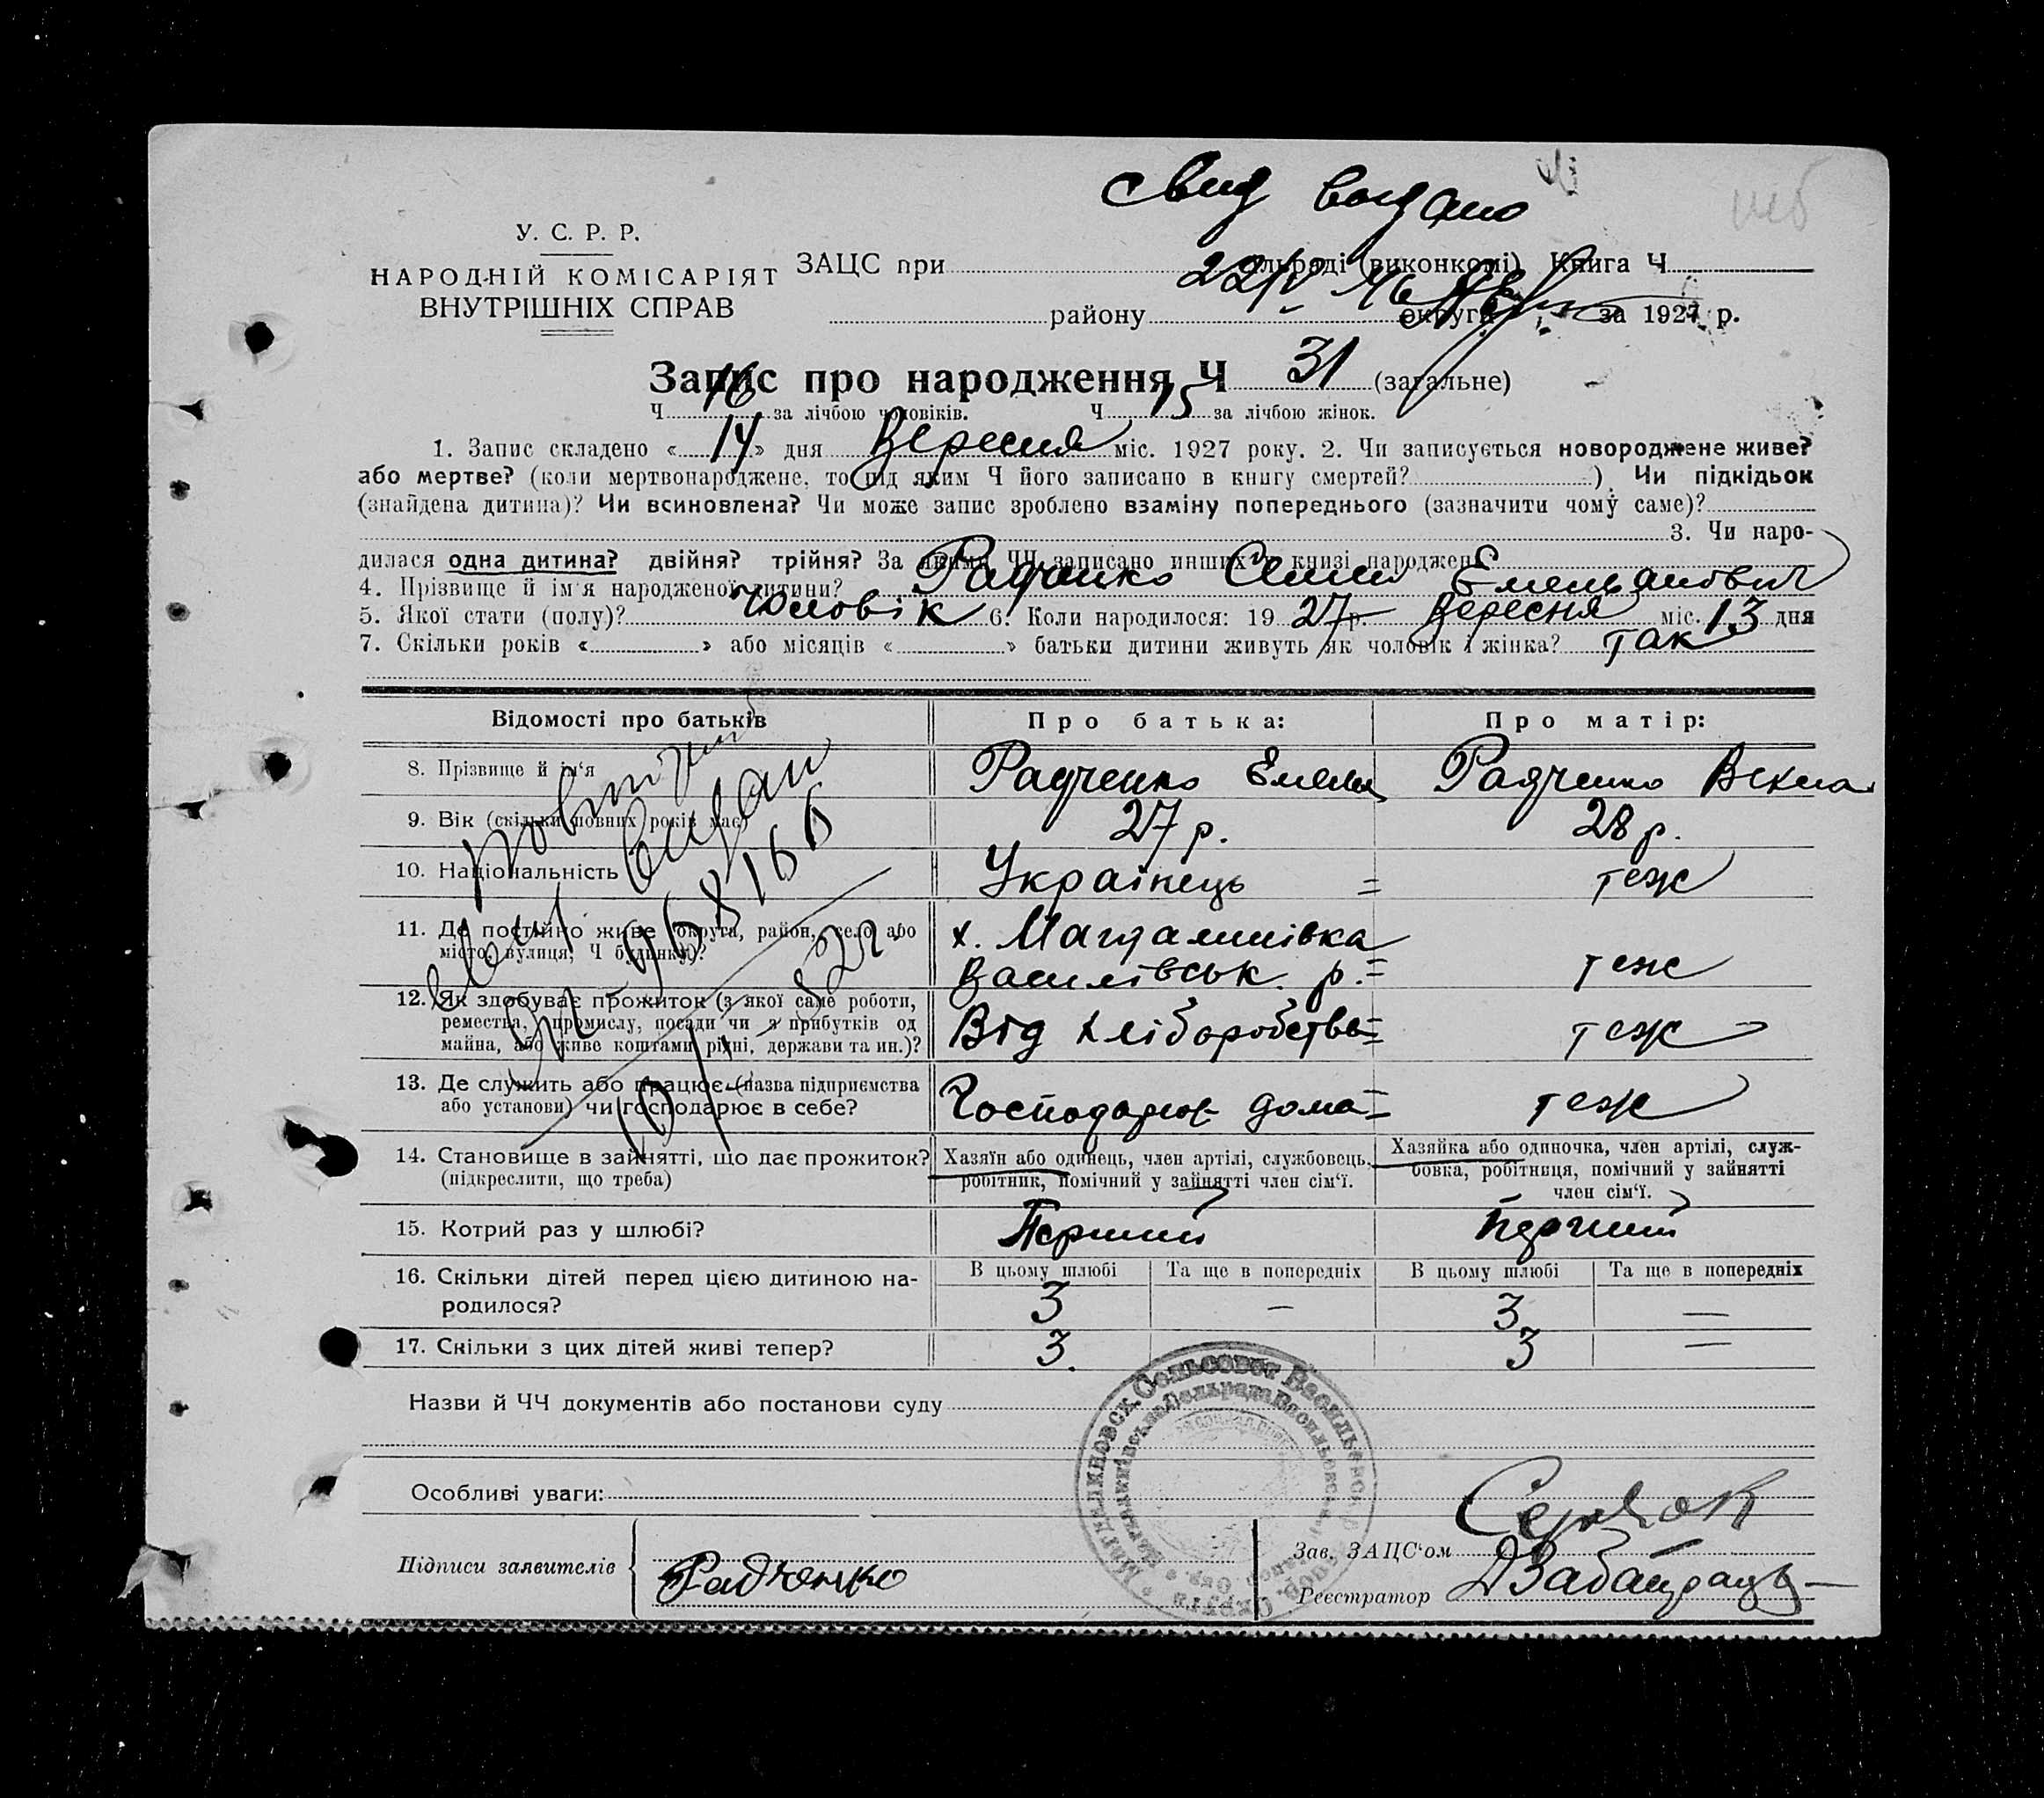 Свид выдано
У. С. Р. Р.
НАРОДНІЙ КОМІСАРІЯТ
ВНУТРІШНІХ СПРАВ
ЗАЦС при сільраді (виконкомі) Книга Ч
22/IV
району округи за 1927 р.
Запис про народження Ч 31 (загальне)
Ч 16 за лічбою чоловіків. Ч 15 за лічбою жінок.
1. Запис складено « 14 » дня Вересня міс. 1927 року. 2. Чи записується новороджене живе?
або мертве? (коли мертвонароджене, то під яким Ч його записано в книгу смертей? ) Чи підкідьок
(знайдена дитина)? Чи всиновлена? Чи може запис зроблено взаміну попереднього (зазначити чому саме)?
3. Чи наро-
дилася одна дитина? двійня? трійня? За якими ЧЧ записано инших у книзі народжень
4. Прізвище й ім'я народженої дитини? Радченко Емельанович
5. Якої стати (полу)? Чоловік 6. Коли народилося: 19 27 р. Вересня міс. 13 дня
7. Скільки років « » або місяців « » батьки дитини живуть як чоловік і жінка? Так
Відомості про батьків
Про батька:
Про матір:
8. Прізвище й ім'я Радченко Емельян Радченко Векла
9. Вік (скільки повних років має) 27 р. 28 р.
10. Національність Українець = теж
11. Де постійно живе (округа, район, село або
місто, вулиця, Ч будинку)?
х. Магдалинівка
Василівськ. р. = теж
12. Як здобуває прожиток (з якої саме роботи,
ремества, промислу, посади чи з прибутків од
майна, або живе коштами рідні, держави та ин.)?
Від хліборобства = теж
13. Де служить або працює (назва підприємства
або установи) чи господарює в себе?
Господарює дома = теж
14. Становище в зайнятті, що дає прожиток?
(підкреслити, що треба)
Хазяїн або одинець, член артілі, службовець,
робітник, помічний у зайнятті член сім'ї.
Хазяйка або одиночка, член артілі, служ-
бовка, робітниця, помічний у зайнятті
член сім'ї.
15. Котрий раз у шлюбі? Перший Перший
16. Скільки дітей перед цією дитиною на-
родилося?
В цьому шлюбі Та ще в попередніх В цьому шлюбі Та ще в попередніх
3 — 3 —
17. Скільки з цих дітей живі тепер? 3. 3 —
повторний
свид выдан
10/
Назви й ЧЧ документів або постанови суду
Особливі уваги:
Підписи заявителів Радченко
Зав. ЗАЦС'ом
Реєстратор